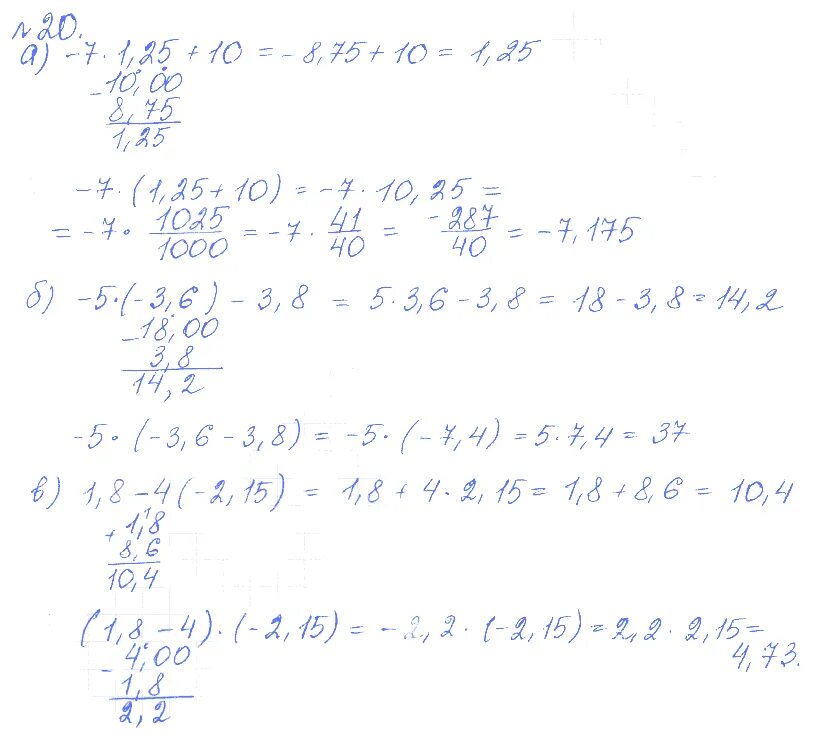 №20.
а) -7 · 1,25 + 10 = - 8,75 + 10 = 1,25
- 10,00
8,75
1,25
-7 · (1,25 + 10) = -7 · 10,25 =
= -7 · 1025/1000 = -7 · 41/40 = -287/40 = -7,175
б) -5 · (-3,6) - 3,8 = 5 · 3,6 - 3,8 = 18 - 3,8 = 14,2
- 18,00
3,8
14,2
-5 · (-3,6 - 3,8) = -5 · (-7,4) = 5 · 7,4 = 37
в) 1,8 - 4 (-2,15) = 1,8 + 4 · 2,15 = 1,8 + 8,6 = 10,4
+ 1,8
8,6
10,4
(1,8 - 4) · (-2,15) = -2,2 · (-2,15) = 2,2 · 2,15 =
4,73.
- 4,00
1,8
2,2